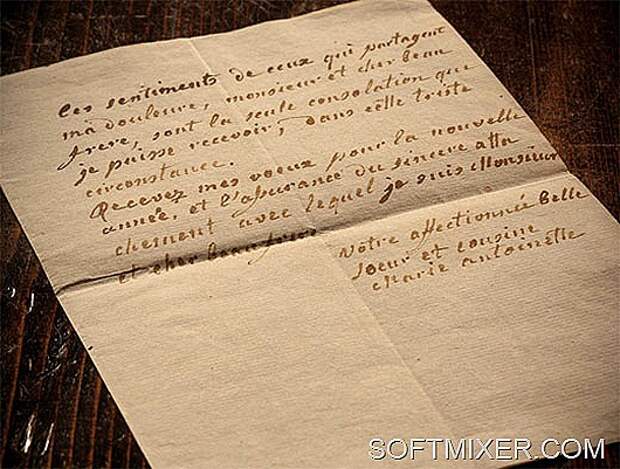 les sentiments de ceux qui partagent
ma douleure, monsieur et cher beau
frere, sont la seule consolation que
je puisse recevoir, dans cette triste
circonstance.
Recevez mes voeux pour la nouvelle
année, et l'assurance du sincere atta
chement avec lequel je suis Monsieur
et cher beau frere
Votre affectionnée belle
soeur et cousine
Marie antoinette
SOFTMIXER.COM